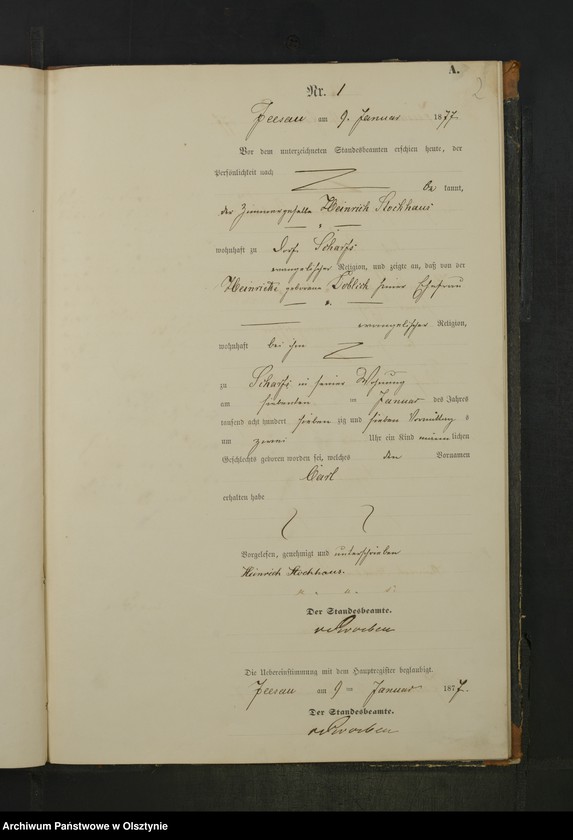 A.
2
Nr. 1
Jeesau am 9. Januar 1877.
Vor dem unterzeichneten Standesbeamten erschien heute, der
Persönlichkeit nach
be kannt,
der Zimmergeselle Heinrich Stockhaus
wohnhaft zu Dorf Scharfs
evangelischer Religion, und zeigte an, daß von der
Heinriette geborene Doblich seiner Ehefrau
evangelischer Religion,
wohnhaft bei ihm
zu Scharfs in seiner Wohnung
am siebenten = Januar des Jahres
tausend acht hundert sieben zig und sieben Vormittag s
um zwei Uhr ein Kind männ lichen
Geschlechts geboren worden sei, welches den Vornamen
Carl
erhalten habe
Vorgelesen, genehmigt und unterschrieben
Heinrich Stockhaus.
Der Standesbeamte.
Die Uebereinstimmung mit dem Hauptregister beglaubigt.
Jeesau am 9 = Januar 1877.
Der Standesbeamte.
Archiwum Państwowe w Olsztynie